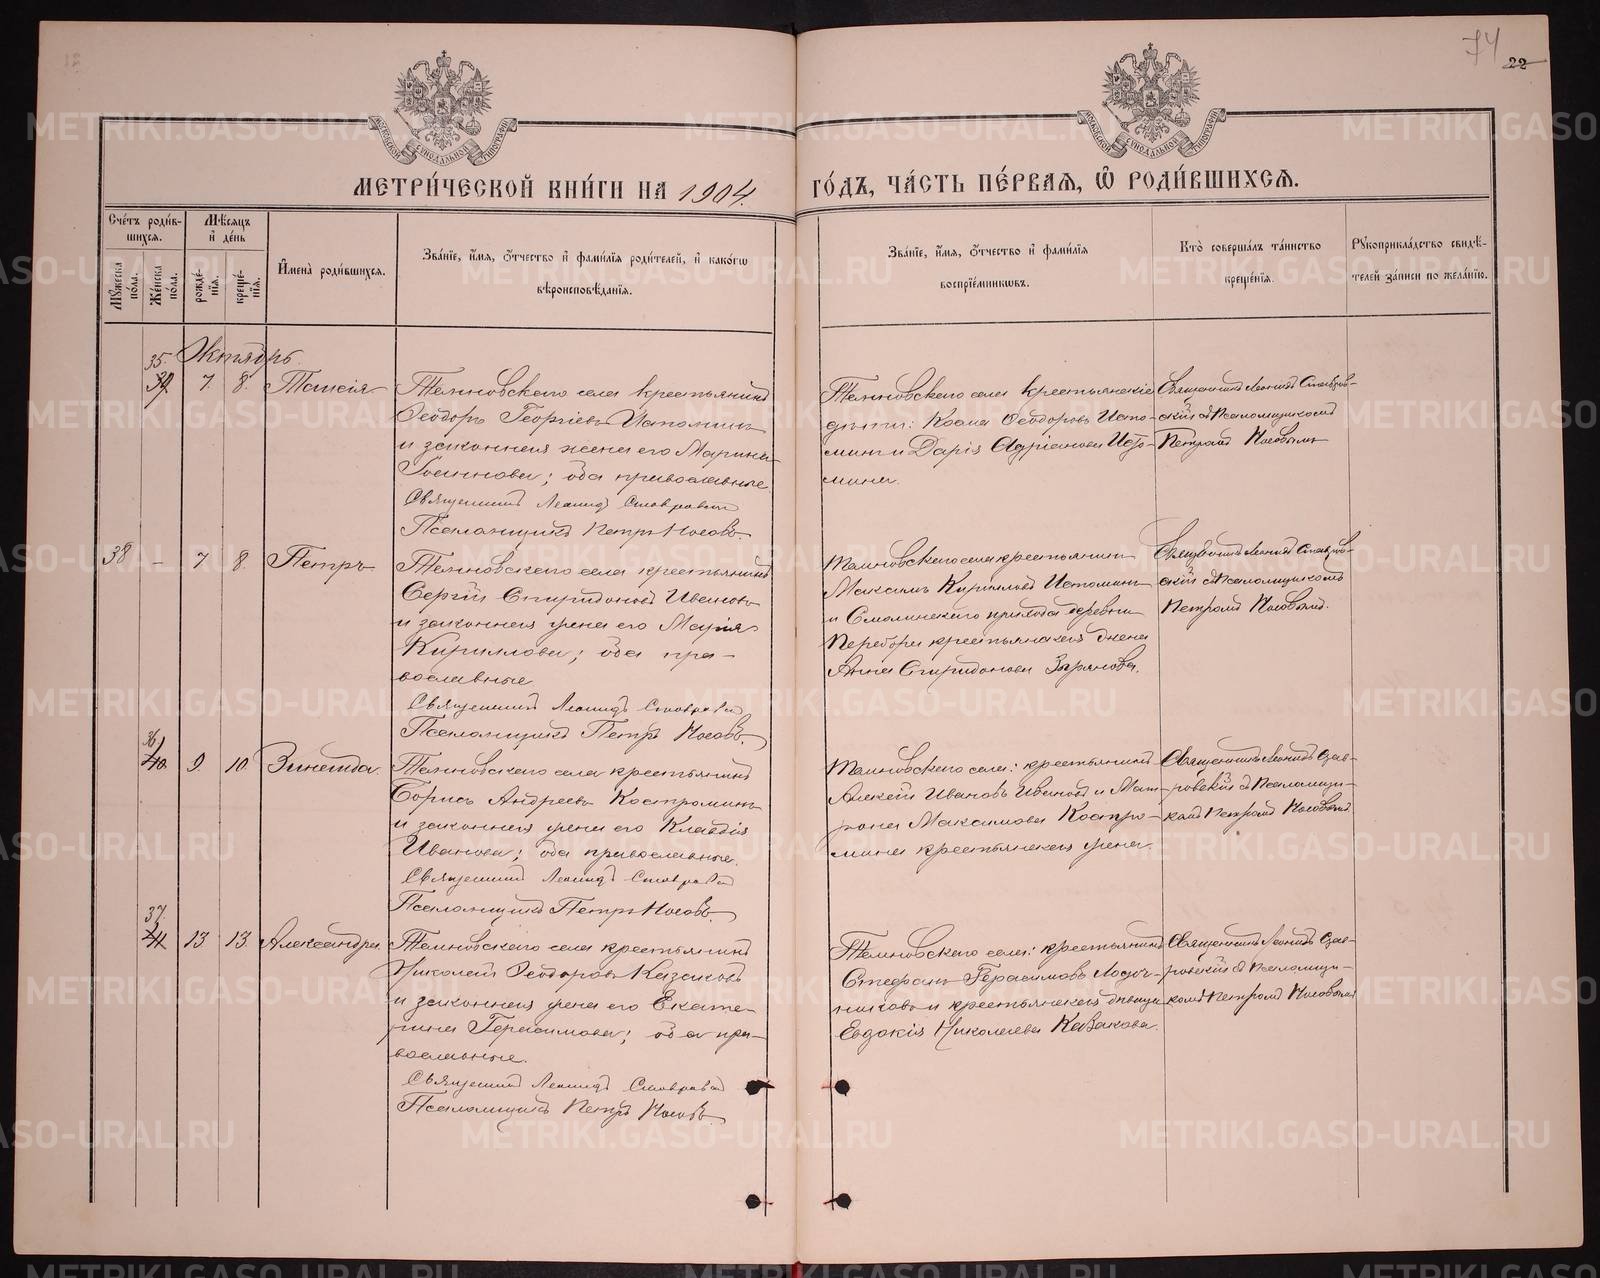 74
22
МОСКОВСКОЙ СѴНОДАЛЬНОЙ ТИПОГРАФІИ
МОСКОВСКОЙ СѴНОДАЛЬНОЙ ТИПОГРАФІИ
МЕТРИ́ЧЕСКОЙ КНИ́ГИ НА 1904. ГО́ДЪ, ЧА́СТЬ ПЕ́РВАѦ, Ѡ҆ РОДИ́ВШИХСѦ.
Сче́тъ роди́в-
шихсѧ.
Мꙋ́жеска по́ла.
Же́нска по́ла.
Мѣ́сѧцъ и҆ де́нь
рожде́-
нїѧ.
креще́-
нїѧ.
И҆мена̀ роди́вшихсѧ.
Зва́нїе, и҆́мѧ, ѻ҆́тчество и҆ фами́лїѧ роди́телей, и҆ како́гѡ
вѣроисповѣ́данїѧ.
Зва́нїе, и҆́мѧ, ѻ҆́тчество и҆ фами́лїѧ
воспрїе́мникѡвъ.
Кто̀ соверша́лъ та́инство
креще́нїѧ.
Рꙋкоприкла́дство свидѣ́-
телей за́писи по жела́нїю.
Октябрь
35. 7. 8. Таисія
Темновского села крестьянинъ
Ѳеодоръ Георгіевъ Истоминъ
и законная жена его Марина
Іоаннова; оба православные
Священникъ Леонидъ Ставровскій
Псаломщикъ Петръ Носовъ.
Темновского села крестьянскіе
дѣти: Косма Ѳеодоровъ Исто-
минъ и Дарія Адріанова Исто-
мина.
Священникъ Леонидъ Ставров-
скій съ Псаломщикомъ
Петромъ Носовымъ
38 – 7 8. Петръ
Темновского села крестьянинъ
Сергій Спиридоновъ Ивановъ
и законная жена его Марія
Кириллова; оба пра-
вославные
Священникъ Леонидъ Ставровскій
Псаломщикъ Петръ Носовъ.
Темновского села крестьянинъ
Максимъ Кирилловъ Истоминъ
и Смолинского прихода деревни
Переборы крестьянская жена
Анна Спиридонова Зырянова.
Священникъ Леонидъ Ставров-
скій съ Псаломщикомъ
Петромъ Носовымъ.
36 40. 9. 10. Зинаида
Темновского села крестьянинъ
Борисъ Андреевъ Костроминъ
и законная жена его Клавдія
Иванова; оба православные.
Священникъ Леонидъ Ставровскій
Псаломщикъ Петръ Носовъ.
Темновского села: крестьянинъ
Алексій Ивановъ Ивановъ и Мат-
рона Максимова Костро-
мина крестьянская жена.
Священникъ Леонидъ Став-
ровскій съ Псаломщи-
комъ Петромъ Носовымъ
37. 41 13 13. Александра.
Темновского села крестьянинъ
Николай Ѳеодоровъ Казаковъ
и законная жена его Екате-
рина Герасимова; оба пра-
вославные.
Священникъ Леонидъ Ставровскій
Псаломщикъ Петръ Носовъ.
Темновского села: крестьянинъ
Стефанъ Герасимовъ Лодоч-
никовъ и крестьянская дѣвица
Евдокія Николаева Казакова.
Священникъ Леонидъ Став-
ровскій съ Псаломщи-
комъ Петромъ Носовымъ
METRIKI.GASO-URAL.RU